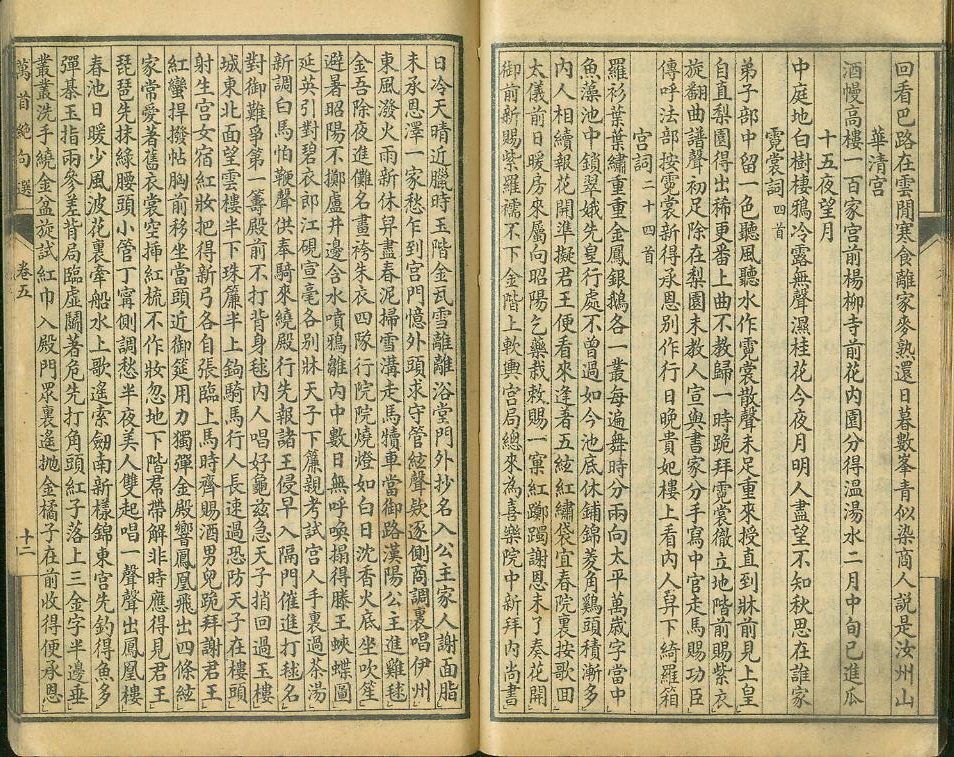 回看巴路在雲閒寒食離家麥熟還日暮數峯青似染商人說是汝州山
華清宮
酒幔高樓一百家宮前楊柳寺前花內園分得温湯水二月中旬已進瓜
十五夜望月
中庭地白樹棲鴉冷露無聲濕桂花今夜月明人盡望不知秋思在誰家
霓裳詞四首
弟子部中留一色聽風聽水作霓裳散聲未足重來授直到牀前見上皇
自直梨園得出稀更番上曲不教歸一時跪拜霓裳徹立地階前賜紫衣
旋翻曲譜聲初足除在梨園未教人宣與書家分手寫中官走馬賜功臣
傳呼法部按霓裳新得承恩別作行日晚貴妃樓上看內人舁下綺羅箱
宮詞二十四首
羅衫葉葉繡重重金鳳銀鵝各一叢每遍舞時分兩向太平萬歲字當中
魚藻池中鎖翠娥先皇行處不曾過如今池底休鋪錦菱角鷄頭積漸多
內人相續報花開準擬君王便看來逢著五絃紅繡袋宜春院裏按歌回
太儀前日暖房來屬向昭陽乞藥栽敕賜一窠紅躑躅謝恩未了奏花開
御前新賜紫羅襦不下金階上軟輿宮局總來為喜樂院中新拜內尚書
日冷天晴近臘時玉階金瓦雪離離浴堂門外抄名入公主家人謝面脂
未承恩澤一家愁乍到宮門憶外頭求守管絃聲欵逐側商調裏唱伊州
東風潑火雨新休舁盡春泥掃雪溝走馬犢車當御路漢陽公主進雞毬
金吾除夜進儺名畫袴朱衣四隊行院院燒燈如白日沈香火底坐吹笙
避暑昭陽不擲盧井邊含水噴鴉雛內中數日無呼喚搨得滕王蛺蝶圖
延英引對碧衣郎江硯宣毫各別牀天子下簾親考試宮人手裏過茶湯
新調白馬怕鞭聲供奉騎來繞殿行先報諸王侵早入隔門催進打毬名
對御難爭第一籌殿前不打背身毬內人唱好龜兹急天子捎回過玉樓
城東北面望雲樓半下珠簾半上鉤騎馬行人長速過恐防天子在樓頭
射生宮女宿紅妝把得新弓各自張臨上馬時齊賜酒男兒跪拜謝君王
紅蠻捍撥帖胸前移坐當頭近御筵用力獨彈金殿響鳳凰飛出四條絃
家常愛著舊衣裳空插紅梳不作妝忽地下階帬帶解非時應得見君王
琵琶先抹綠腰頭小管丁寧側調愁半夜美人雙起唱一聲聲出鳳凰樓
春池日暖少風波花裏牽船水上歌遙索劔南新樣錦東宮先釣得魚多
彈棊玉指兩參差背局臨虛鬬著危先打角頭紅子落上三金字半邊垂
叢叢洗手繞金盆旋試紅巾入殿門眾裏遙抛金橘子在前收得便承恩
萬首絶句選 卷五 十二